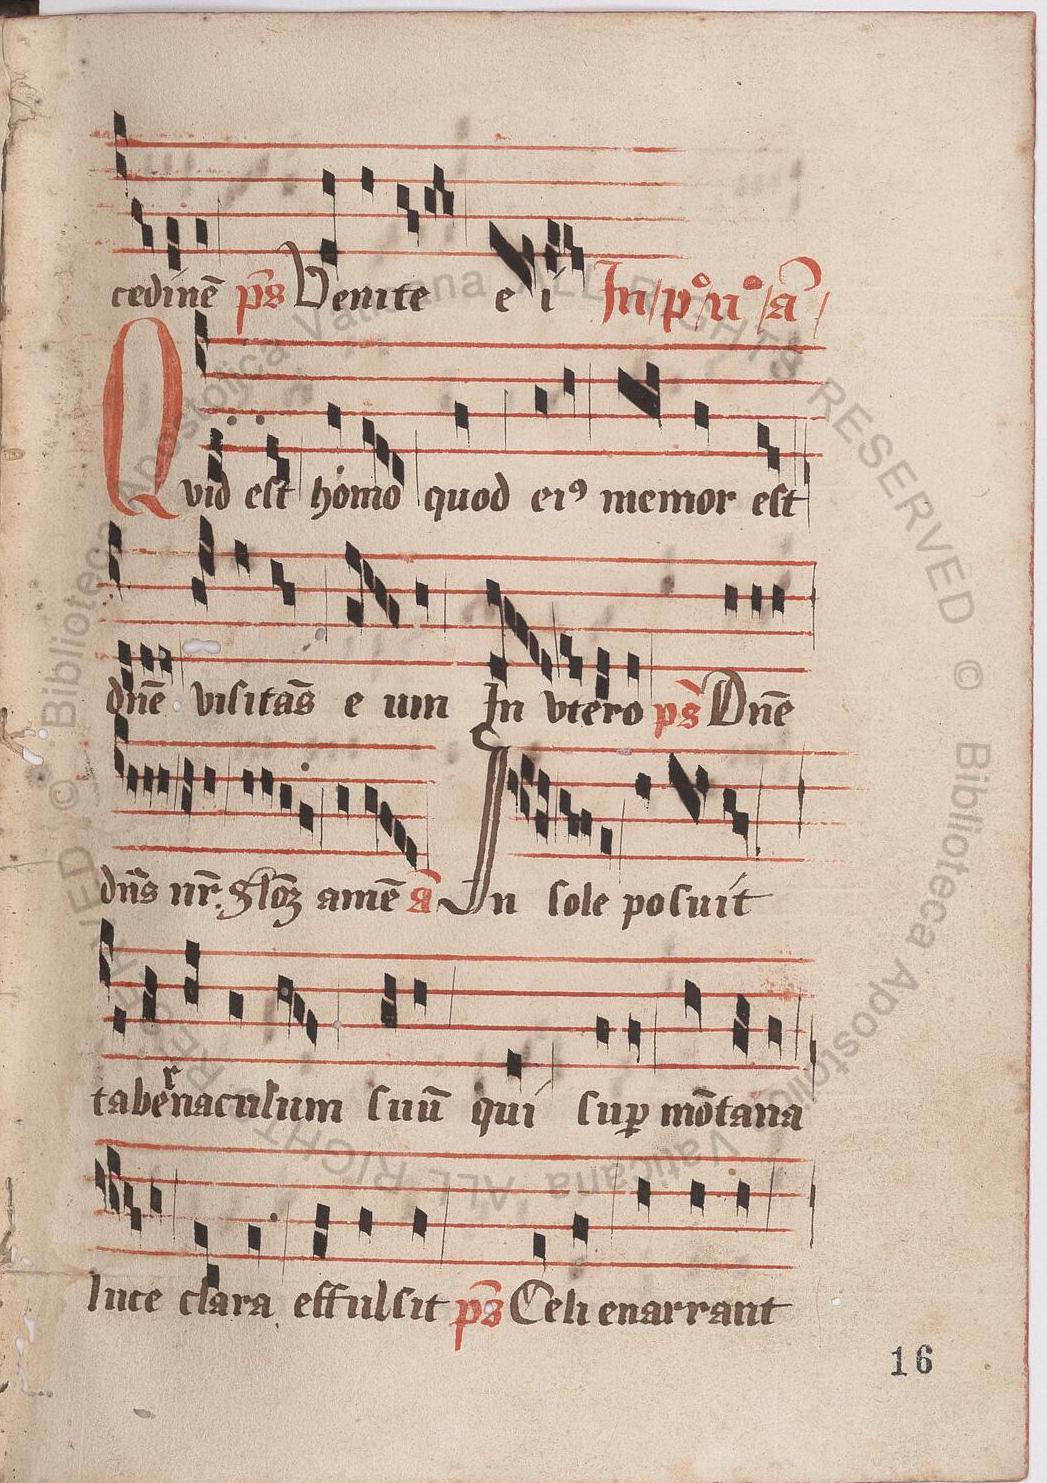 cedinē p̄s Venite e i In p° n° ā
Quid est homo quod ei⁹ memor est
dn̄e visitas̄ e um In vtero ps̄ Dn̄e
dn̄s nr̄. gl̄oꝫ amē ā In sole posuit
tabernaculum suū qui suꝑ mōtana
luce clara effulsit p̄s Celi enarrant
16
© Biblioteca Apostolica Vaticana ALL RIGHTS RESERVED © Biblioteca Apostolica Vaticana ALL RIGHTS RESERVED